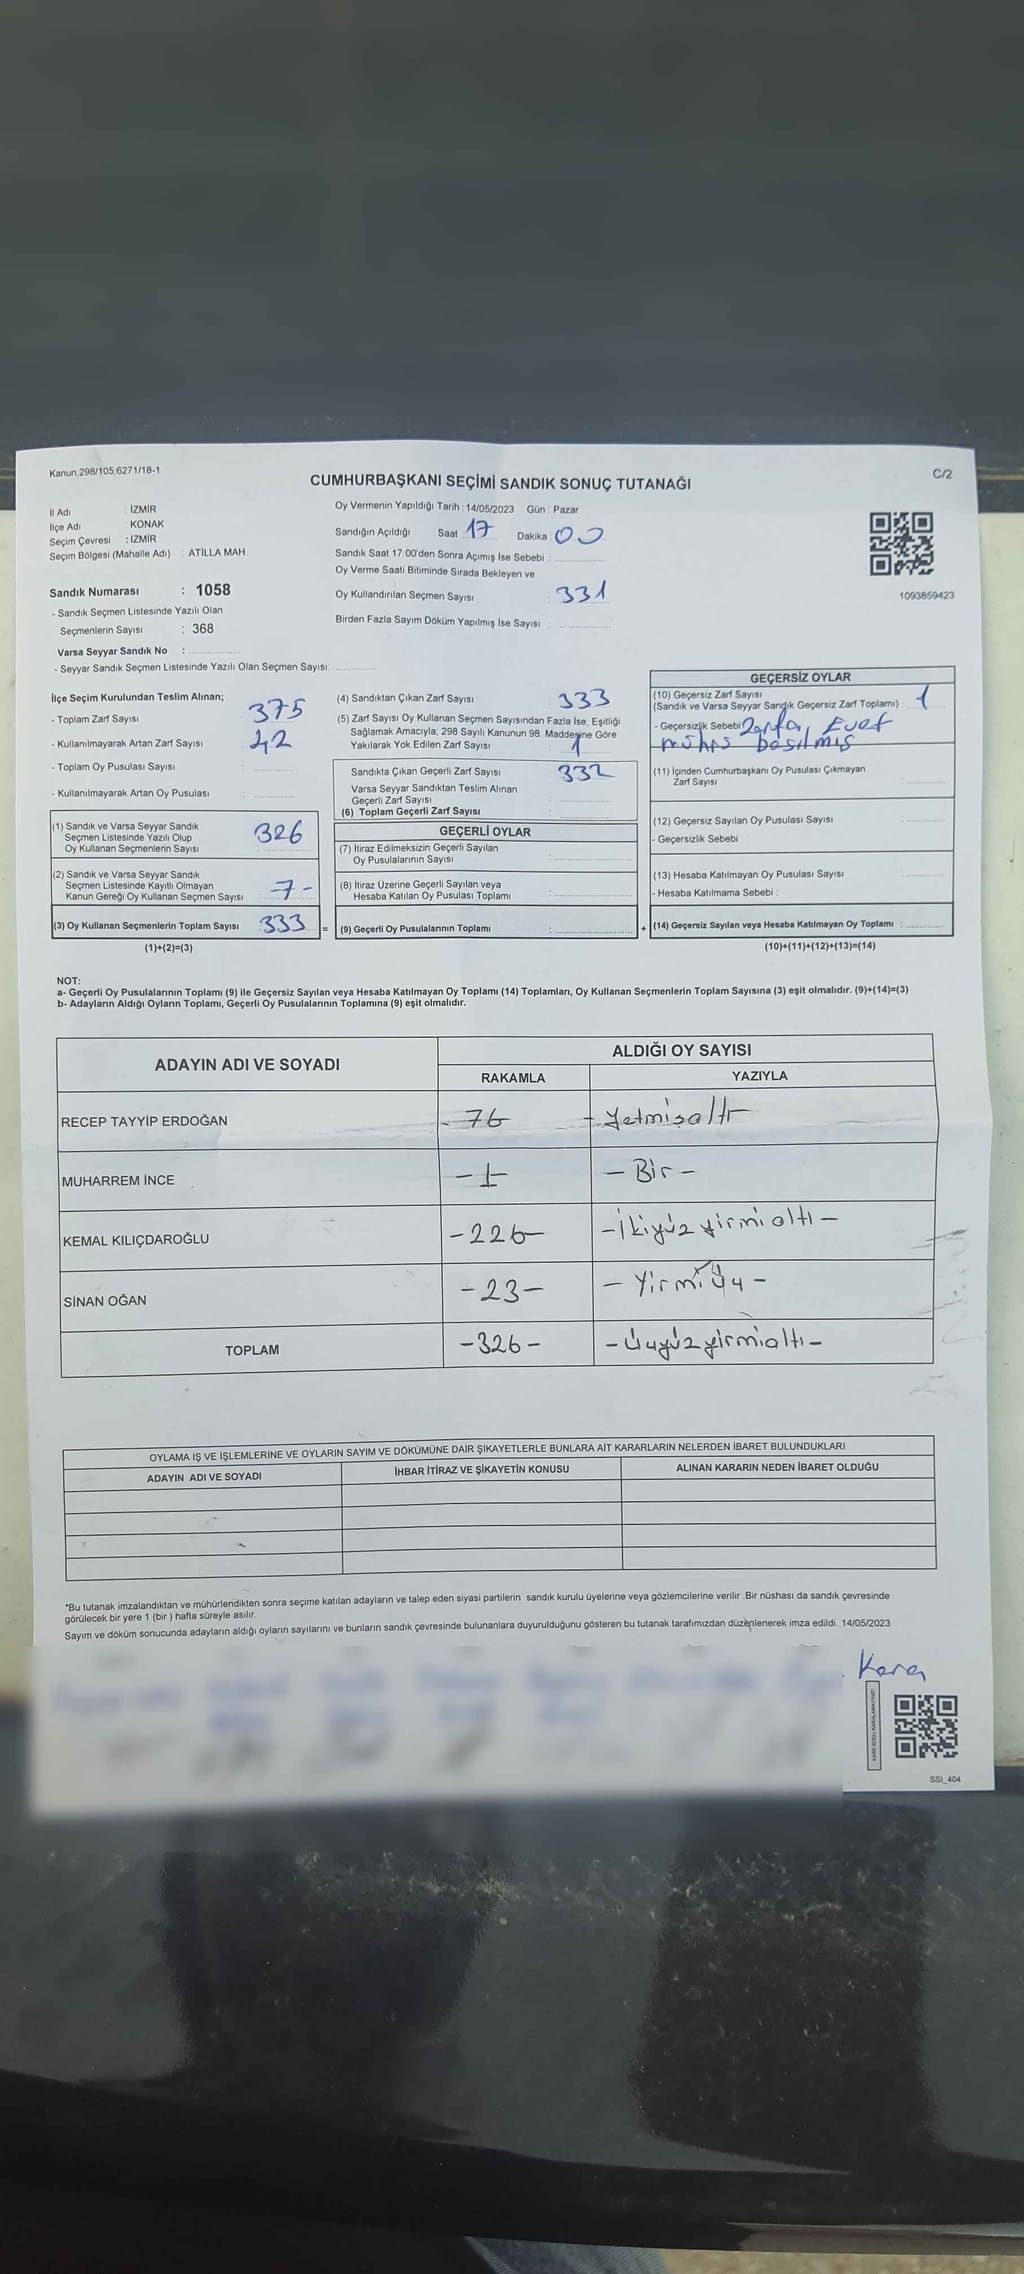 Kanun,298/105,6271/18-1
C/2
CUMHURBAŞKANI SEÇİMİ SANDIK SONUÇ TUTANAĞI
İl Adı : İZMİR
İlçe Adı : KONAK
Seçim Çevresi : İZMİR
Seçim Bölgesi (Mahalle Adı) : ATİLLA MAH.
Sandık Numarası : 1058
- Sandık Seçmen Listesinde Yazılı Olan
Seçmenlerin Sayısı : 368
Varsa Seyyar Sandık No :
- Seyyar Sandık Seçmen Listesinde Yazılı Olan Seçmen Sayısı:
Oy Vermenin Yapıldığı Tarih : 14/05/2023 Gün : Pazar
Sandığın Açıldığı Saat 17 Dakika 00
Sandık Saat 17:00'den Sonra Açımış İse Sebebi :
Oy Verme Saati Bitiminde Sırada Bekleyen ve
Oy Kullandırılan Seçmen Sayısı : 331
Birden Fazla Sayım Döküm Yapılmış İse Sayısı :
1093859423
İlçe Seçim Kurulundan Teslim Alınan;
- Toplam Zarf Sayısı : 375
- Kullanılmayarak Artan Zarf Sayısı : 42
- Toplam Oy Pusulası Sayısı :
- Kullanılmayarak Artan Oy Pusulası :
(1) Sandık ve Varsa Seyyar Sandık
Seçmen Listesinde Yazılı Olup
Oy Kullanan Seçmenlerin Sayısı : 326
(2) Sandık ve Varsa Seyyar Sandık
Seçmen Listesinde Kayıtlı Olmayan
Kanun Gereği Oy Kullanan Seçmen Sayısı : -7-
(3) Oy Kullanan Seçmenlerin Toplam Sayısı : 333 =
(1)+(2)=(3)
(4) Sandıktan Çıkan Zarf Sayısı : 333
(5) Zarf Sayısı Oy Kullanan Seçmen Sayısından Fazla İse, Eşitliği
Sağlamak Amacıyla, 298 Sayılı Kanunun 98. Maddesine Göre
Yakılarak Yok Edilen Zarf Sayısı : 1
Sandıkta Çıkan Geçerli Zarf Sayısı : 332
Varsa Seyyar Sandıktan Teslim Alınan
Geçerli Zarf Sayısı :
(6) Toplam Geçerli Zarf Sayısı :
GEÇERLİ OYLAR
(7) İtiraz Edilmeksizin Geçerli Sayılan
Oy Pusulalarının Sayısı :
(8) İtiraz Üzerine Geçerli Sayılan veya
Hesaba Katılan Oy Pusulası Toplamı :
(9) Geçerli Oy Pusulalarının Toplamı : +
GEÇERSİZ OYLAR
(10) Geçersiz Zarf Sayısı
(Sandık ve Varsa Seyyar Sandık Geçersiz Zarf Toplamı) : 1
- Geçersizlik Sebebi : Zarfa, Evet
mührs basılmış
(11) İçinden Cumhurbaşkanı Oy Pusulası Çıkmayan
Zarf Sayısı :
(12) Geçersiz Sayılan Oy Pusulası Sayısı :
- Geçersizlik Sebebi :
(13) Hesaba Katılmayan Oy Pusulası Sayısı :
- Hesaba Katılmama Sebebi :
(14) Geçersiz Sayılan veya Hesaba Katılmayan Oy Toplamı :
(10)+(11)+(12)+(13)=(14)
NOT:
a- Geçerli Oy Pusulalarının Toplamı (9) ile Geçersiz Sayılan veya Hesaba Katılmayan Oy Toplamı (14) Toplamları, Oy Kullanan Seçmenlerin Toplam Sayısına (3) eşit olmalıdır. (9)+(14)=(3)
b- Adayların Aldığı Oyların Toplamı, Geçerli Oy Pusulalarının Toplamına (9) eşit olmalıdır.
ADAYIN ADI VE SOYADI ALDIĞI OY SAYISI
RAKAMLA YAZIYLA
RECEP TAYYİP ERDOĞAN - 76 - Yetmişaltı
MUHARREM İNCE -1- - Bir -
KEMAL KILIÇDAROĞLU -226- -İkiyüz yirmi altı -
SİNAN OĞAN -23- - Yirmi Üç -
TOPLAM -326- -Üçyüzyirmialtı-
OYLAMA İŞ VE İŞLEMLERİNE VE OYLARIN SAYIM VE DÖKÜMÜNE DAİR ŞİKAYETLERLE BUNLARA AİT KARARLARIN NELERDEN İBARET BULUNDUKLARI
ADAYIN ADI VE SOYADI İHBAR İTİRAZ VE ŞİKAYETİN KONUSU ALINAN KARARIN NEDEN İBARET OLDUĞU
*Bu tutanak imzalandıktan ve mühürlendikten sonra seçime katılan adayların ve talep eden siyasi partilerin sandık kurulu üyelerine veya gözlemcilerine verilir .Bir nüshası da sandık çevresinde
görülecek bir yere 1 (bir ) hafta süreyle asılır.
Sayım ve döküm sonucunda adayların aldığı oyların sayılarını ve bunların sandık çevresinde bulunanlara duyurulduğunu gösteren bu tutanak tarafımızdan düzenlenerek imza edildi. 14/05/2023
KARE KODU KARALAMAYINIZ!
SSI_404